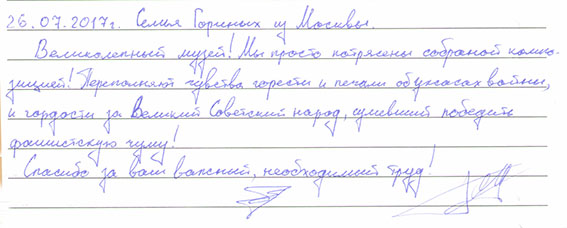 26.07.2017г. Семья Гориных из Москвы.
Великолепный музей! Мы просто потрясены собраной компо-
зицией! Переполняют чувства горести и печали об ужасах войны,
и гордости за Великий Советский народ, сумевший победить
фашистскую чуму!
Спасибо за ваш важный, необходимый труд!